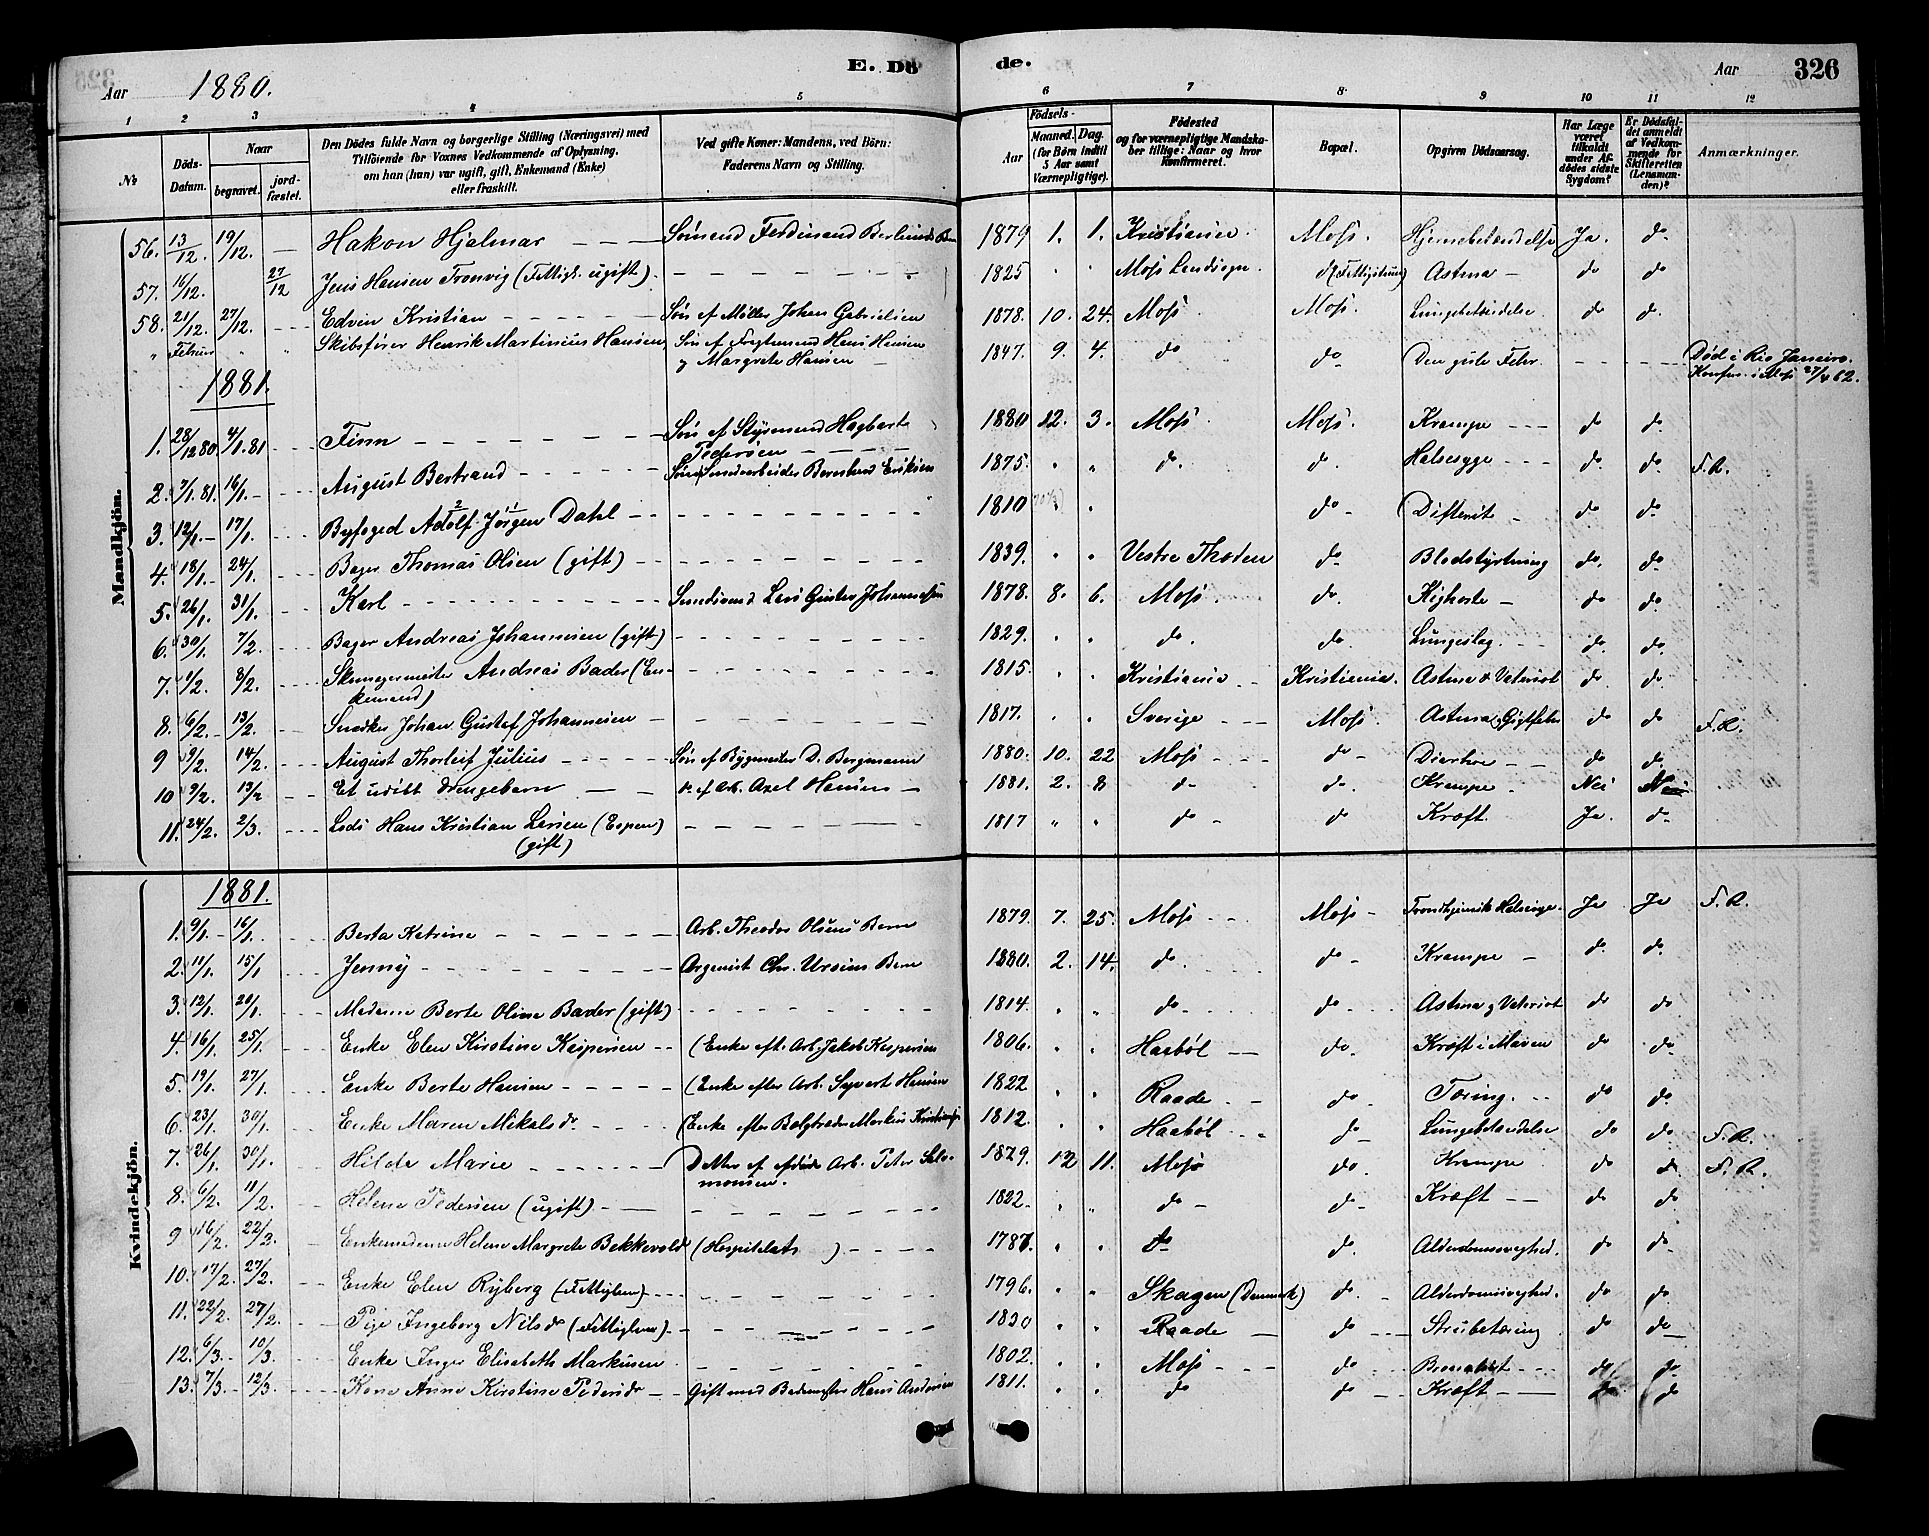 Aar 1880. E. Dö de. Aar 326
1 2 3 4 5 6 7 8 9 10 11 12
№ Döds-Datum. Naar begravet. jordfæstet. Den Dödes fulde Navn og borgerlige Stilling (Næringsvei) med Tilföiende for Voxnes Vedkommende af Oplysning, om han (hun) var ugift, gift, Enkemand (Enke) eller fraskilt. Ved gifte Koner: Mandens, ved Börn: Faderens Navn og Stilling. Födsels- Aar Maaned. Dag. (for Börn indtil 5 Aar samt Værnepligtige). Födested og for værnepligtige Mandskaber tillige: Naar og hvor konfirmeret. Bopæl. Opgiven Dödsaarsag. Har Læge været tilkaldt under Afdödes sidste Sygdom? Er Dödsfaldet anmeldt af Vedkommende for Skifteretten (Lensmanden)? Anmærkninger.
Mandkjön.
56. 13/12. 19/12. — Hakon Hjalmar — — — Sömand Ferdinand Berlunds Barn 1879 1. 1. Kristiania. Moss. Hjernebetændelse Ja. do
57. 16/12. 27/12 Jens Hansen Tronvig (Fattigl. ugift) — — — 1825 " " Moss Landsogn. do (Fattighus) Astma — do do
58. 21/12. 27/12. Edvin Kristian — — — Sön af Möller Johan Gabrielsen 1878. 10. 24. Moss Moss. Lungebetændelse do do.
" Februar " " Skibsförer Henrik Martinius Hansen, Sön af Hans Hansen 1847. 9. 4. do do Den gule Feber. — — — Död i Rio Janeiro.
og Margrete Hansen — Konfirm. i Moss 27/4 62.
1881.
1. 28/12 80 4/1 81 Finn — — — Sön af Styrmand Hagbart 1880 12. 3. Moss. Moss. Krampe — — do do
Pedersen — — —
2. 7/1 81. 16/1 — August Bertrand — — — Sön Bernhard Eriksen 1875. " " do. do. Halsesyge — — do. do. F. R.
3. 12/1 — 17/1 Byfoged Adolf Jörgen Dahl — — — 1810 " do — Difterit — do do
2 1
4. 18/1 — 24/1. Bager Thomas Olsen (gift) — — — 1839. " " Vestre Thoten do Blodstyrtning do. do
5. 26/1 31/1. Karl — — — Lars Gustav Johannesen 1878. 8. 6. Moss. do. Kighoste — do do.
6. 30/1. 7/2. Bager Andreas Johannesen (gift) — — — 1829. " " do. do. Lungeslag. — — do. do.
7. 1/2. 8/2. Andreas Bader (En- — — — 1815. " " Kristiania — Kristiania. Astma & do. do.
kemand)
8. 6/2. 13/2. Snedker Johan Gustaf Johannesen — — — 1817. " " Sverige — — Moss. Astma, Gigtfeber do do F. R.
9 9/2. 14/2. August Thorleif Julius — — — Sön af Bygmester D. Bergmann 1880. 10. 22 Moss — — do — Diarhoe — — do do.
10 9/2. 13/2 — — Et udöbt drengebarn — — do. af Arb. Axel Hansen — 1881. 2. 8 do do. Krampe Nei Nei
11. 24/2. 2/3. Lods Hans Kristian Larsen (Espen) — — — 1817 " " do — do Kræft. Ja. do.
(gift)
Kvindekjön.
1881.
1. 9/1. — 16/1. Berta Katrine — — — Arb. Theodor Olsens Barn 1879. 7. 25. Moss — — Moss — Trondhjemsk Halsesyge. Ja Ja F. R.
2. 11/1. 15/1 Jenny — — — Organist Chr. Ursins Barn 1880. 2. 14. do. do — Krampe — do. do.
3. 12/1. 20/1. Madame Berte Oline Bader (gift) — — — 1814. " " do — do — Astma & do do
4. 16/1. 25/1. Enke Elen Kirstine Kaspersen — — (Enke eft. Arb. Jakob Kaspersen 1806. " " Haabøl — do — Kræft i Maven do do.
5. 19/1. 27/1. Enke Berte Hansen — — — (Enke efter Arb. Syvert Hansen 1822. " " Raade — do — Tæring. — do do.
6. 23/1. 30/1. Enke Maren Mikalsdr — — — (Enke efter Markus 1812. " " Haabøl — do Lungebetændelse do do. F. R.
7. 26/1. 30/1. Hilda Marie — — — Datter af afdöde Arb. Peter Salo- 1879. 12 11. Moss do. Krampe do do F. R.
monsen.
8. 6/2. 11/2. Helene Pedersen (ugift) — — — 1822. " " do — do — Kræft — do do
9 16/2. 22/2. Enkemadame Helene Margrete Bekkevold (Hospitalets ) — — — 1787. " " do do. Alderdomssvaghed. do do
10. 17/2. 27/2. Enke Elen Ryberg (Fattiglem) — — — 1796. " " Skagen (Danmark) do. Alderdomssvaghed. do do.
11. 22/2 27/2. Pige Ingeborg Nilsdr (Fattiglem) — — — 1830 " " Raade — do — Strubetæring do do
12. 6/3. — 10/3. Enke Inger Elisabeth Markusen — — — 1802. " " Moss — — do — — do do
13. 7/3. — 12/3. Kone Anne Kirstine Pedersdr — Gift med Hans Andersen 1811. " " do do — Kræft — — do do